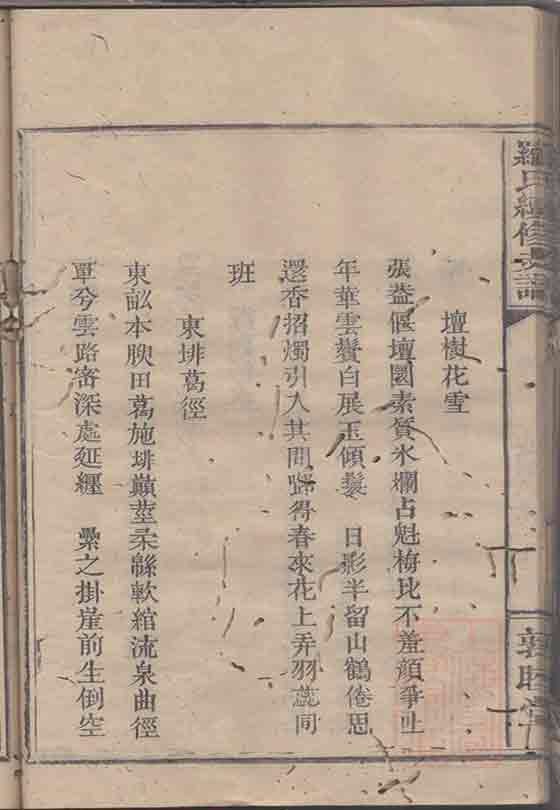 羅氏續修支譜
敦睦堂
壇樹花雪
張蓋偃壇園素質氷爛占魁梅比不羞顏爭吐
年華雲鬢白展玉傾鬟 日影半留山鶴倦思
還香招燭引入其間歸得春來花上弄羽蕊同
班
東排葛徑
東畝本腴田葛施排巔莖柔緜軟綰流泉曲徑
單兮雲路窎深處延纏 纍之掛崖前生倒空